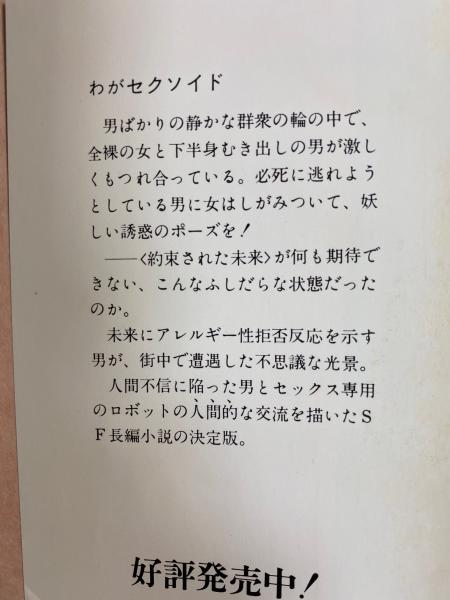 わがセクソイド
男ばかりの静かな群衆の輪の中で、
全裸の女と下半身むき出しの男が激し
くもつれ合っている。必死に逃れよう
としている男に女はしがみついて、妖
しい誘惑のポーズを！
――〈約束された未来〉が何も期待で
きない、こんなふしだらな状態だった
のか。
未来にアレルギー性拒否反応を示す
男が、街中で遭遇した不思議な光景。
人間不信に陥った男とセックス専用
のロボットの人間的な交流を描いたS
F長編小説の決定版。
好評発売中！